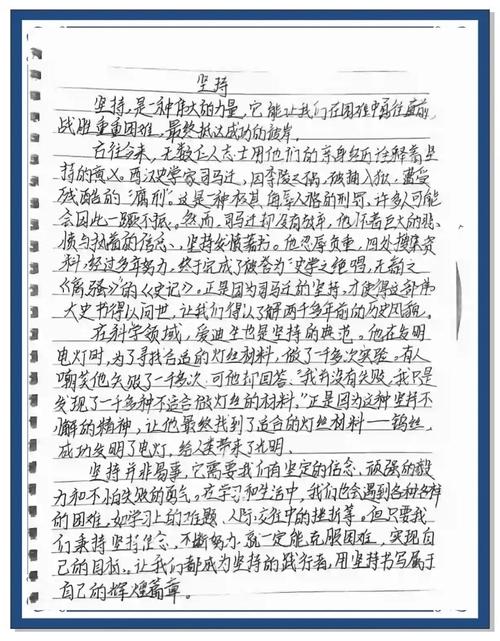 坚持
坚持，是一种伟大的力量，它能让我们在困难中勇往直前，
战胜重重困难，最终抵达成功的彼岸。
古往今来，无数仁人志士用他们的亲身经历诠释着坚
持的意义。西汉史学家司马迁，因李陵之祸，被捕入狱，遭受
残酷的“腐刑”。这是一种极其侮辱人格的刑罚，许多人可能
会因此一蹶不振。然而，司马迁却没有放弃，他怀着巨大的悲
愤与执着的信念，坚持发愤著书。他忍辱负重，四处搜集资
料，经过多年努力，终于完成了被誉为“史家之绝唱，无韵之
《离骚》”的《史记》。正是因为司马迁的坚持，才使得这部伟
大史书得以问世，让我们得以了解两千多年前的历史风貌。
在科学领域，爱迪生也是坚持的典范。他在发明
电灯时，为了寻找合适的灯丝材料，做了一千多次实验。有人
嘲笑他失败了一千多次，可他却回答：“我并没有失败，我只是
发现了一千多种不适合做灯丝的材料。”正是因为这种坚持不
懈的精神，让他最终找到了适合的灯丝材料——钨丝，
成功发明了电灯，给人类带来了光明。
坚持并非易事，它需要我们有坚定的信念、顽强的毅
力和不怕失败的勇气。在学习和生活中，我们也会遇到各种各样
的困难，如学习上的难题、人际交往中的挫折等。但只要我
们秉持坚持信念，不断努力，就一定能克服困难，实现自
己的目标。让我们都成为坚持的践行者，用坚持书写属于
自己的辉煌篇章。